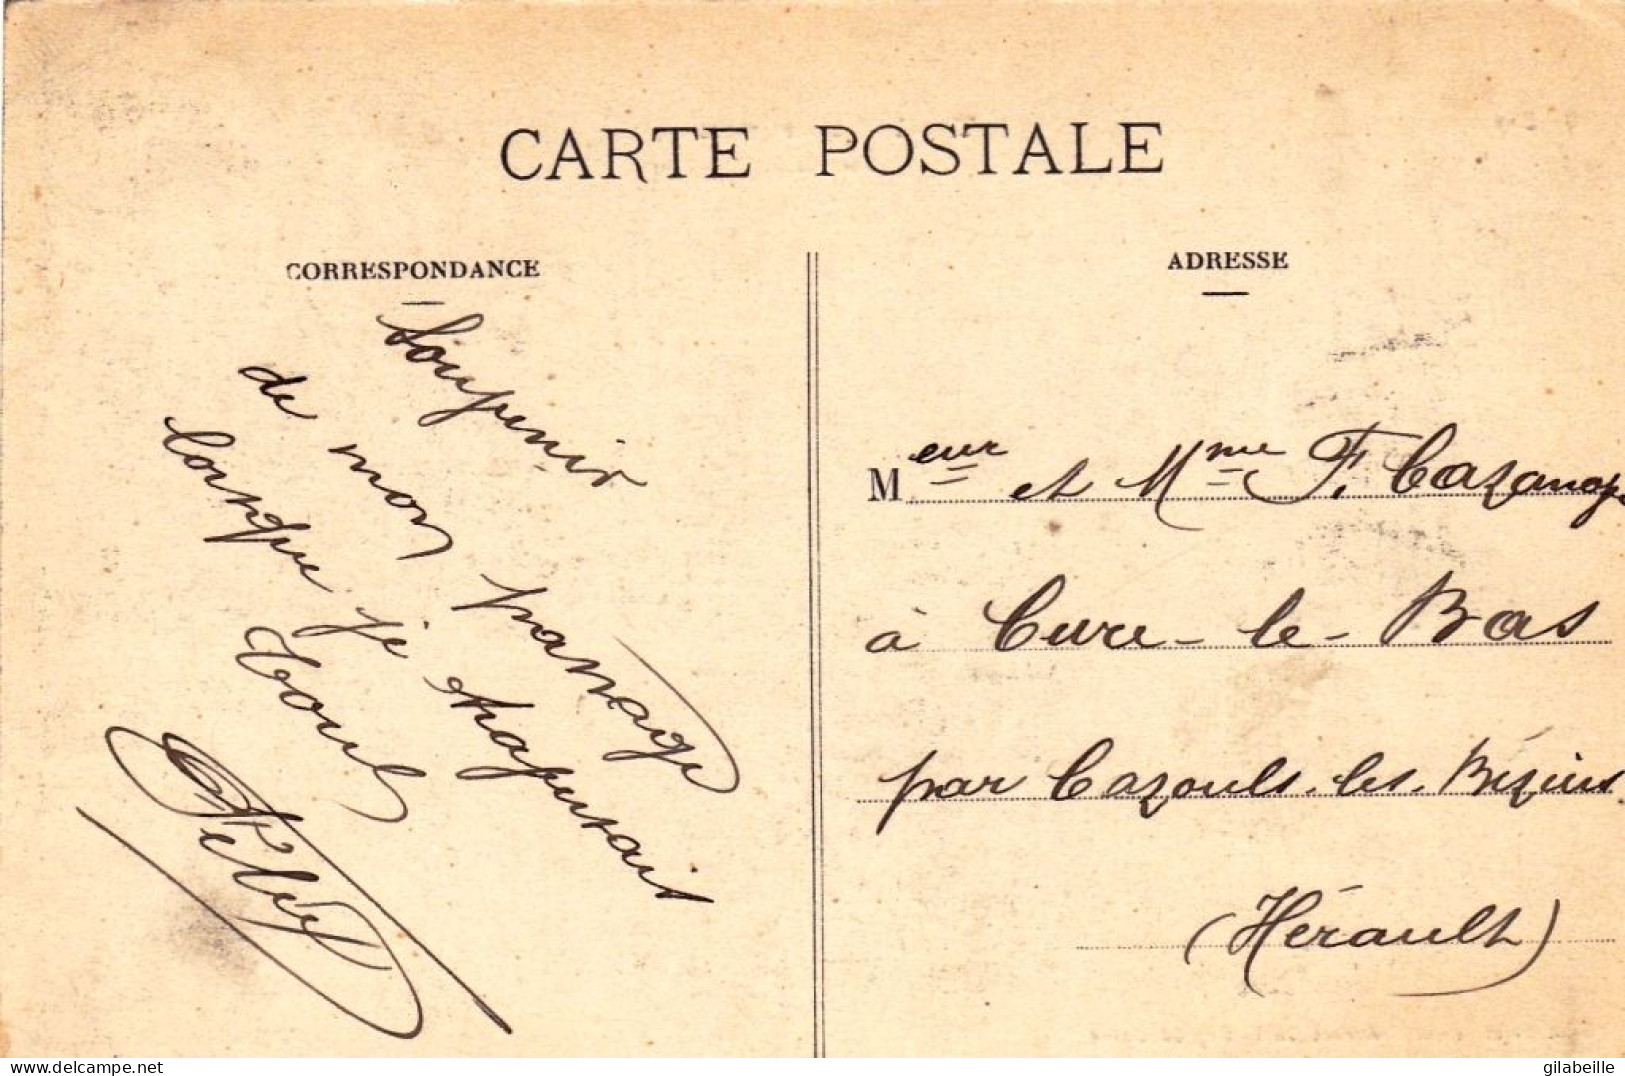 CARTE POSTALE
CORRESPONDANCE
Souvenir
de mon passage
lorsque je
Toul
ADRESSE
Meur et Mme F. Cazanove
à Cure-le-Bas
par Cazouls-les-Béziers
(Hérault)
delcampe.net
gilabeille